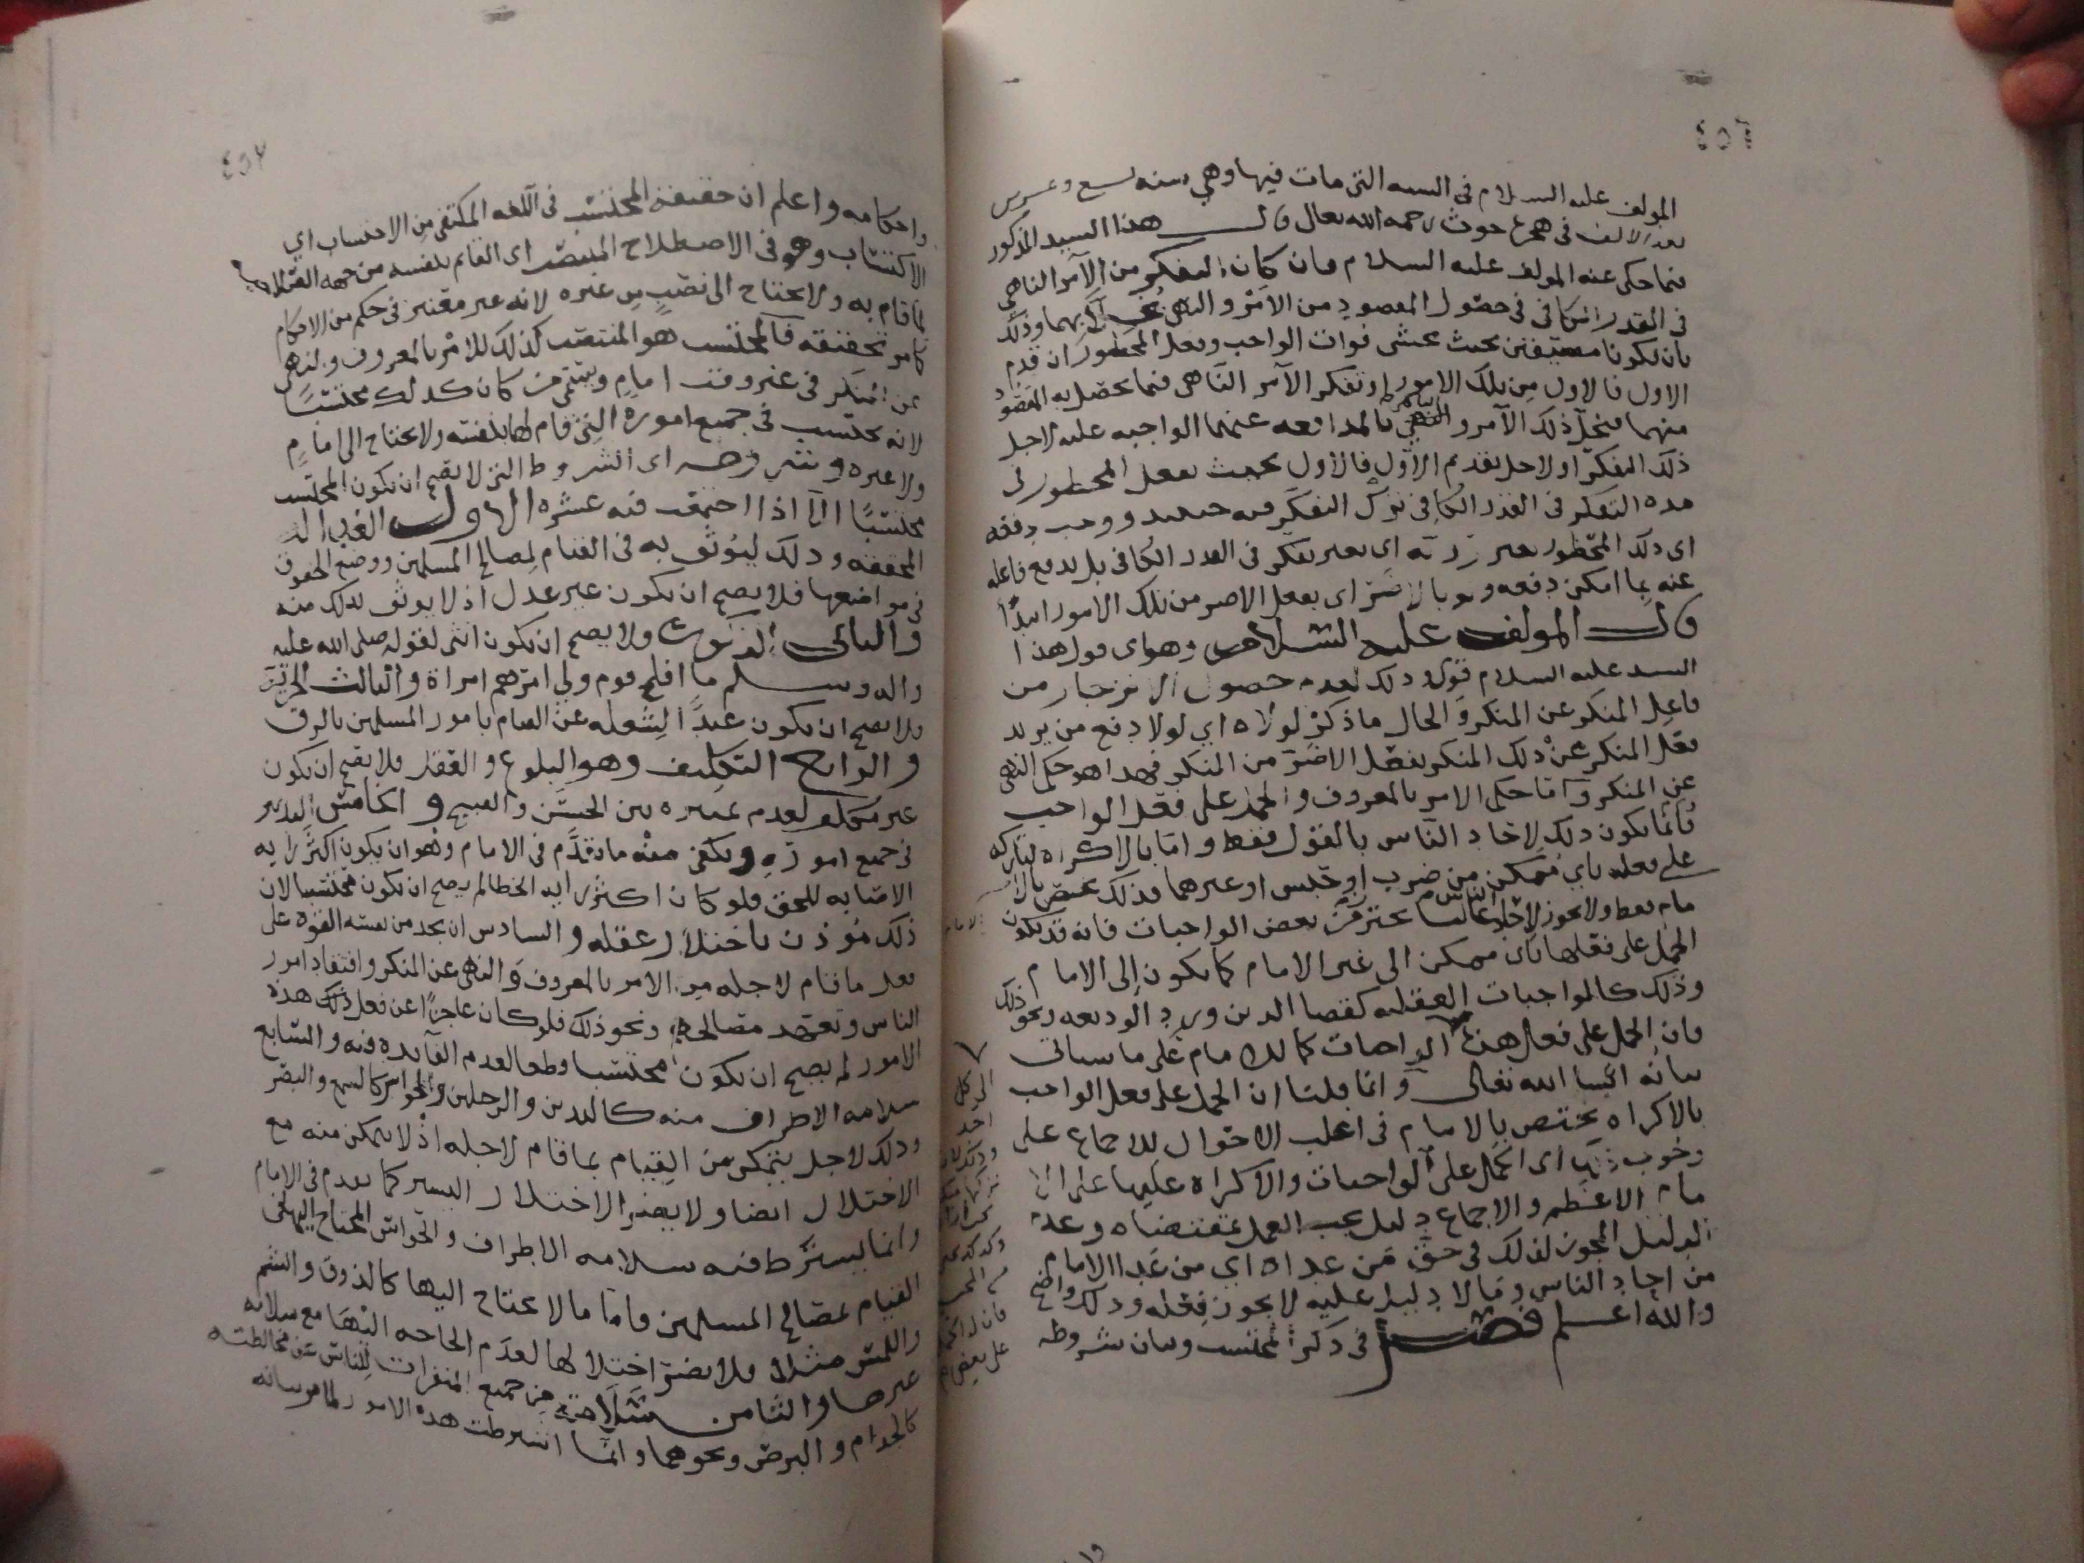 ٤٥٦
المولف عليه السلام في السنه التي مات فيها وهي سنه تسع وعشرين
بعد الالف في هجرة حوث رحمه الله تعالى قال هذا السيد المذكور
فيما حكى عنه المولف عليه السلام وان كان التفكر من الآمر الناهي
في القدر الكافي في حصول المقصود من الامر والنهي وذلك
بان يكونا مضيقين بحيث يخشى فوات الواجب وفعل المحظور ان قدم
الاول فالاول من تلك الامور او تفكر الآمر الناهي فيما يحصل به المقصود
منهما ذلك الآمر والناهي بالمدافعه عنهما الواجبه عليه لاجل
ذلك التفكر او لاجل تقديم الاول فالاول بحيث يفعل المحظور في
مده التفكر في القدر الكافي ترك التفكر فيه حينئذ ووجب دفعه
اي ذلك المحظور بغير اي بغير تفكر في القدر الكافي بل يدفع فاعله
عنه بما امكن دفعه ولو بالاضر اي بفعل الاضر من تلك الامور ابتداً
قال المولف عليه السلام وهو اي قول هذا
السيد عليه السلام قوي وذلك لعدم حصول الانزجار من
فاعل المنكر عن المنكر والحال ما ذكر لولاه اي لولا دفع من يريد
فعل المنكر عن ذلك المنكر بفعل الاضر من المنكر فهذا هو حكم النهي
عن المنكر وامّا حكم الامر بالمعروف والحمل على فعل الواجب
فانما يكون ذلك لاحاد الناس بالقول فقط واما بالاكراه لتاركه
على فعله باي ممكن من ضرب او حبس او غيرهما فذلك يختص بالا
مام فقط ولا يجوز لاحاد الناس غالبا يحترز من بعض الواجبات فانه قد يكون
الحمل على فعلها باي ممكن الى غير الامام كما يكون إلى الامام
وذلك كالواجبات العقليه كقضا الدين ورد الوديعه ونحو ذلك
فان الحمل على فعل هذه الواجبات كما للامام على ما سياتي
بيانه انشا الله تعالى وانما قلنا ان الحمل على فعل الواجب
بالاكراه يختص بالامام في اغلب الاحوال للاجماع على
وجوب اي الحمل على الواجبات والاكراه عليها على الا
مام الاعظم والاجماع دليل يجب العمل بمقتضاه وعدم
الدليل المجوز لذلك في حق من عداه اي من عدا الامام
من احاد الناس وما لا دليل عليه لا يجوز فعله وذلك واضح
والله اعلم فصل في ذكر المحتسب وبيان شروطه
الى كل
احد
٤٥٧
واحكامه واعلم ان حقيقة المحتسب في اللغه المكتفي من الاحتساب اي
الاكتساب وهو في الاصطلاح المنتصب اى القائم بنفسه من جهه
لما قام به ولا يحتاج الى نصب من غيره لانه غير مفتقر في حكم من الاحكام
كما مر تحقيقه فالمحتسب هو المنتصب كذلك للامر بالمعروف والنهي
عن المنكر في غير وقت امام ويسمى من كان كذلك محتسبًا
لانه يحتسب في جميع اموره التي قام لها بنفسه ولا يحتاج الى امامٍ
ولا غيره وشروطه اى الشروط التي لا يصح ان يكون المحتسب
محتسبًا الّا اذا اجتمعت فيه عشره الاول العداله
المحققه وذلك ليوثق به في القيام لمصالح المسلمين ووضع الحقوق
في مواضعها فلا يصح ان يكون غير عدل اذ لا يوثق بذلك منه
والثاني الذكوره ولا يصح ان يكون انثى لقوله صلى الله عليه
واله وسلم ما افلح قوم ولي امرهم امراة والثالث الحرية
ولا يصح ان يكون عبدًا لشغله عن القيام بامور المسلمين بالرق
والرابع التكليف وهو البلوغ والعقل فلا يصح ان يكون
غير مكلف لعدم تمييزه بين الحسن والقبيح والخامس التدبير
في جميع اموره ويكفي منه ما تقدم في الامام وهو ان يكون اكثر رايه
الاصابه للحق فلو كان اكثر رايه الخطا لم يصح ان يكون محتسبا لان
ذلك مُوذن باختلال عقله والسادس ان يجد من نفسه القوة على
فعل ما قام لاجله من الامر بالمعروف والنهي عن المنكر وافتقاد امور
الناس وتعهد مصالحهم ونحو ذلك فلو كان عاجزًا عن فعل ذلك هذه
الامور لم يصح ان يكون محتسبا قطعا لعدم الفآيده فيه والسّابع
سلامه الاطراف منه كاليدين والرجلين والحواس كالسمع والبصر
وذلك لاجل يتمكن من القيام بما قام لاجله اذ لا يتمكن منه مع
الاختلال ايضا ولا يضر الاختلال اليسير كما تقدم في الامام
وانما يشترط فيه سلامه الاطراف والحواس المحتاج اليها في
القيام بمصالح المسلمين فاما ما لا يحتاج اليها كالذوق والشم
واللمس مثلا فلا يضر اختلالها لعدم الحاجه اليها مع سلامه
غيرها والثامن سلامته من جميع المنفرات للناس عن مخالطته
كالجذام والبرص ونحوهما وانما اشترطت هذه الامور لما مر بيانه